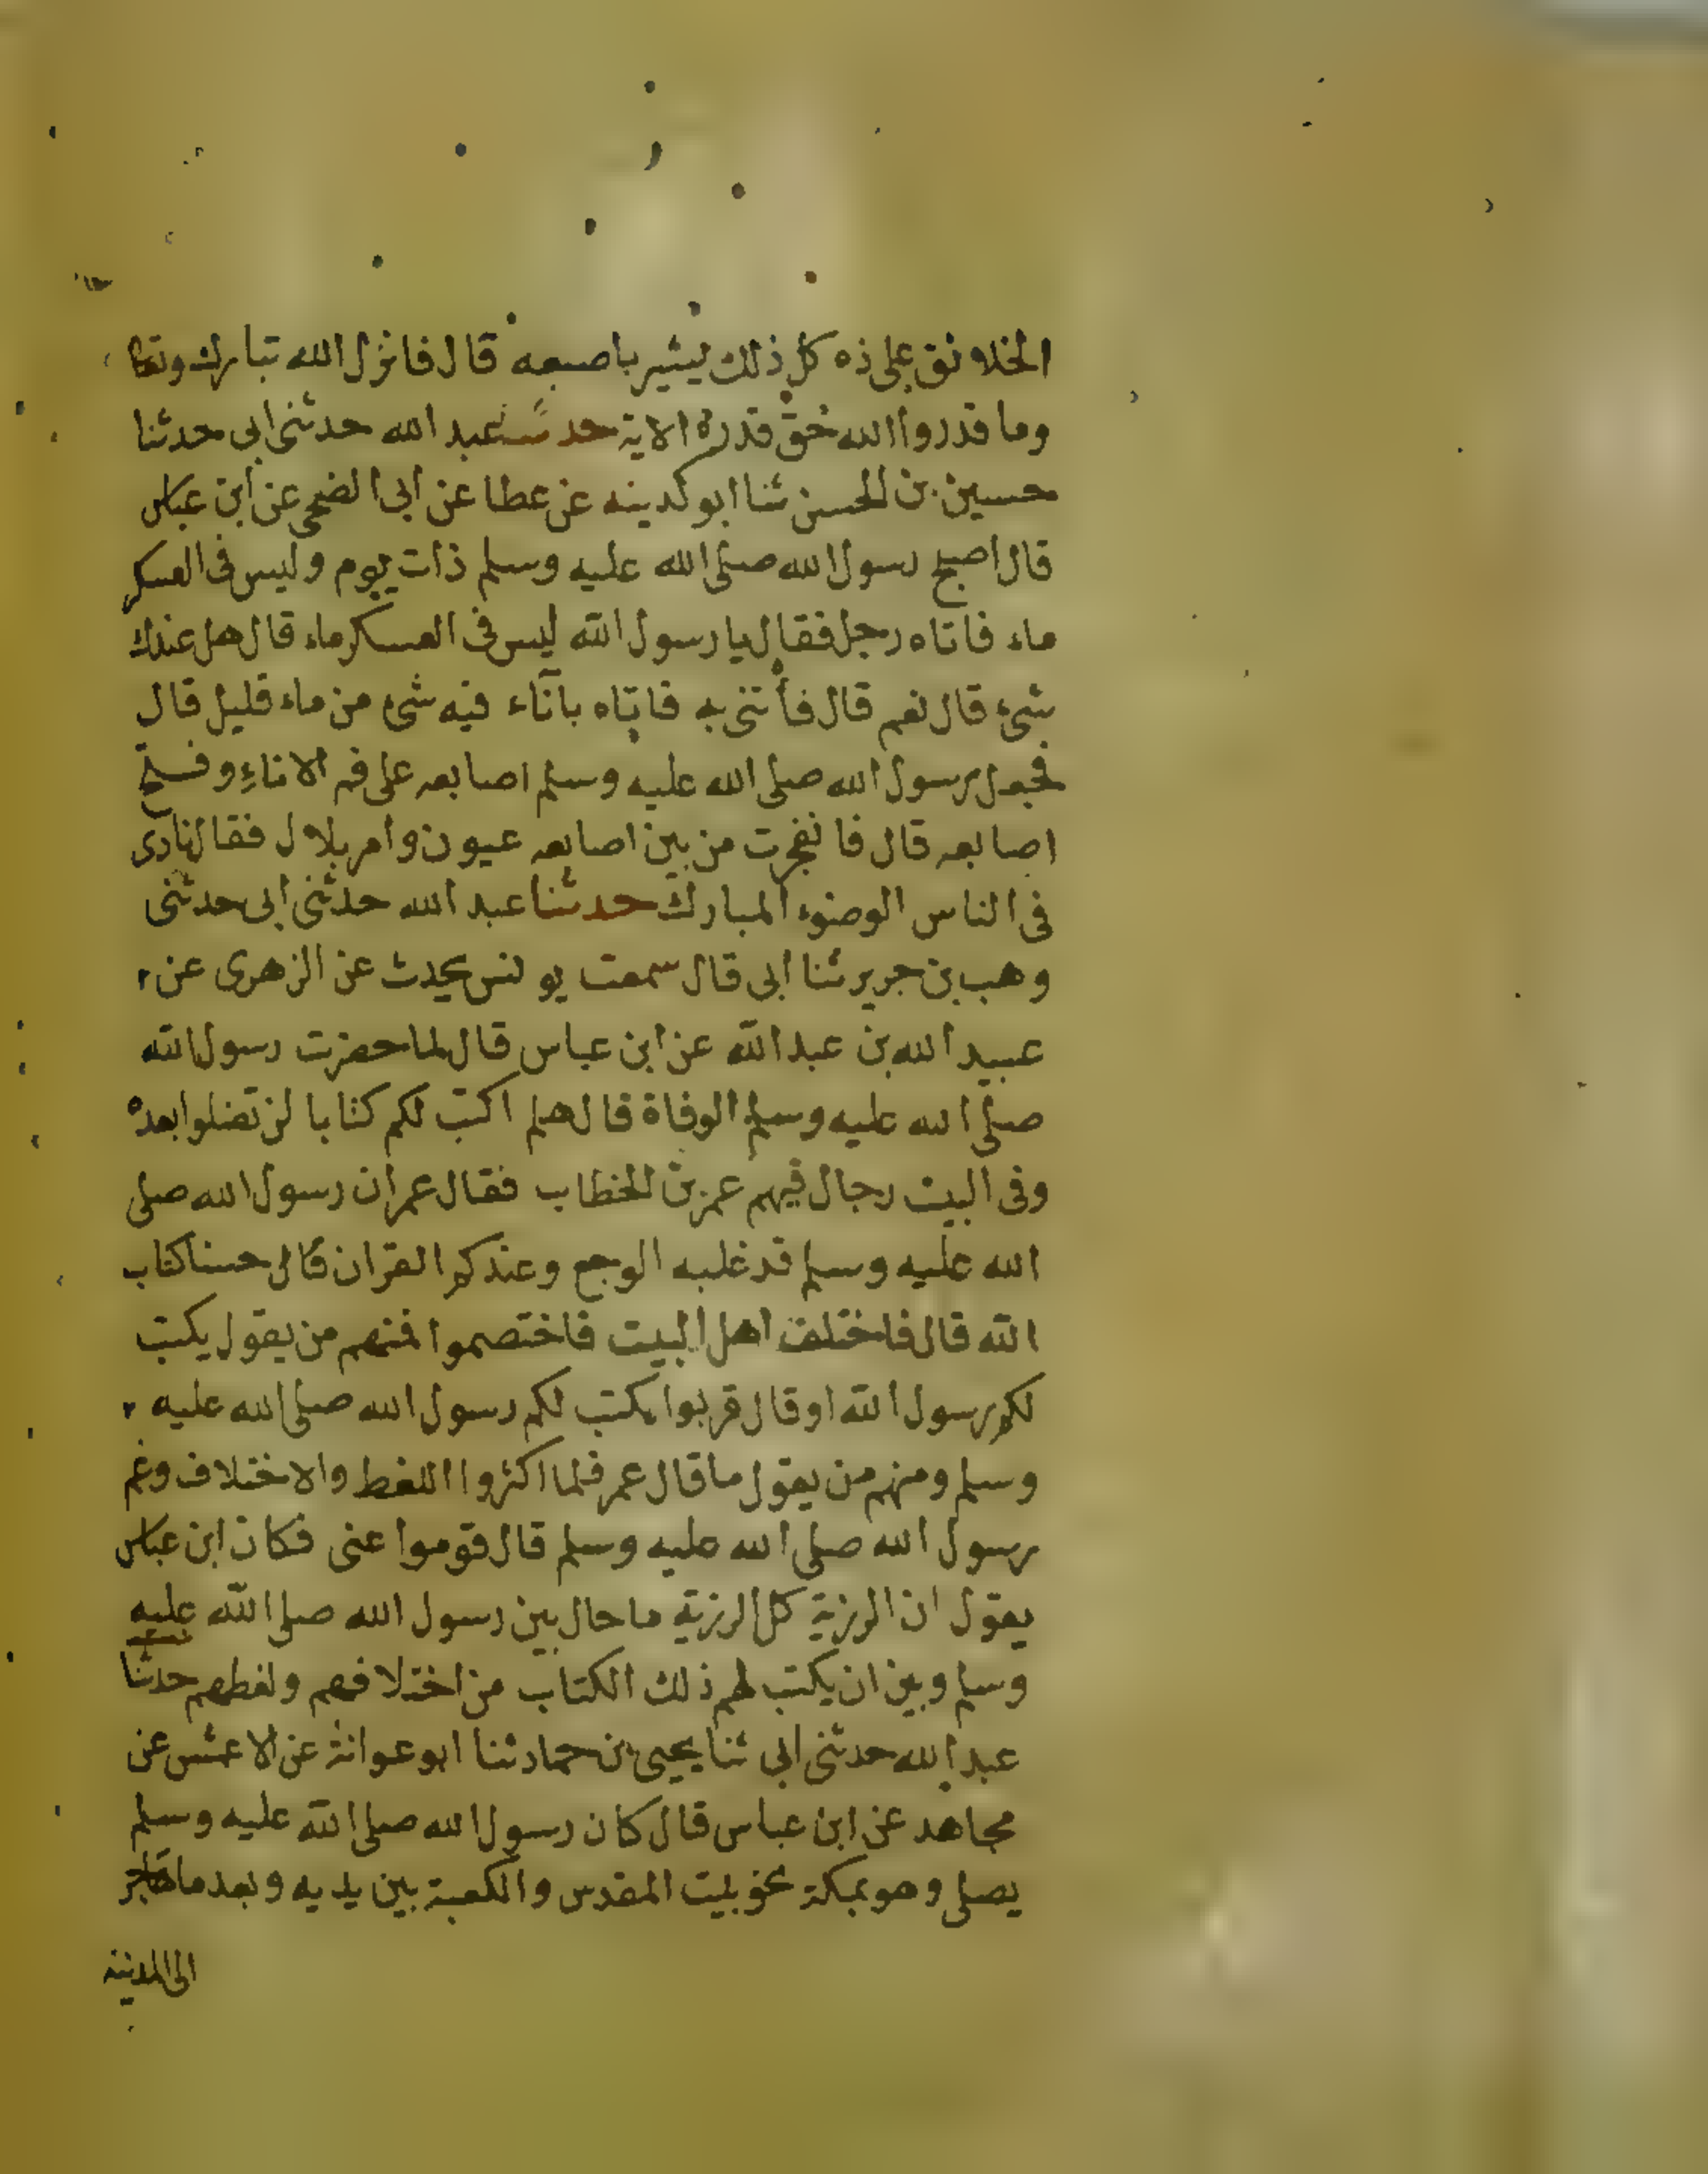 الخلائق على ذه كل ذلك يشير باصبعه قال فانزل الله تبارك وتعا
وما قدروا الله حق قدره الاية حدثنا عبد الله حدثنى ابى حدثنا
حسين بن الحسن ثنا ابو كدينه عن عطا عن ابى الضحى عن ابن عباس
قال اصبح رسول الله صلى الله عليه وسلم ذات يوم وليس فى العسكر
ماء فاتاه رجل فقال يا رسول الله ليس فى العسكر ماء قال هل عندك
شئ قال نعم قال فأتنى به فاتاه باناء فيه شئ من ماء قليل قال
فجعل رسول الله صلى الله عليه وسلم اصابعه على فم الاناء وفتح
اصابعه قال فانفجرت من بين اصابعه عيون وامر بلال فقال نادى
فى الناس الوضوء المبارك حدثنا عبد الله حدثنى ابى حدثنى
وهب بن جرير ثنا ابى قال سمعت يونس يحدث عن الزهرى عن
عبيد الله بن عبد الله عن ابن عباس قال لما حضرت رسول الله
صلى الله عليه وسلم الوفاة قال هلم اكتب لكم كتابا لن تضلوا بعده
وفى البيت رجال فيهم عمر بن الخطاب فقال عمر ان رسول الله صلى
الله عليه وسلم قد غلبه الوجع وعندكم القران قال حسبنا كتاب
الله قال فاختلف اهل البيت فاختصموا فمنهم من يقول يكتب
لكم رسول الله او قال قربوا يكتب لكم رسول الله صلى الله عليه
وسلم ومنهم من يقول ما قال عمر فلما اكثروا اللغط والاختلاف وغم
رسول الله صلى الله عليه وسلم قال قوموا عنى فكان ابن عباس
يقول ان الرزية كل الرزية ما حال بين رسول الله صلى الله عليه
وسلم وبين ان يكتب لهم ذلك الكتاب من اختلافهم ولغطهم حدثنا
عبد الله حدثنى ابى ثنا يحيى بن حماد ثنا ابو عوانة عن الاعمش عن
مجاهد عن ابن عباس قال كان رسول الله صلى الله عليه وسلم
يصلى وهو بمكة نحو بيت المقدس والكعبة بين يديه وبعد ما هاجر
الى المدينة